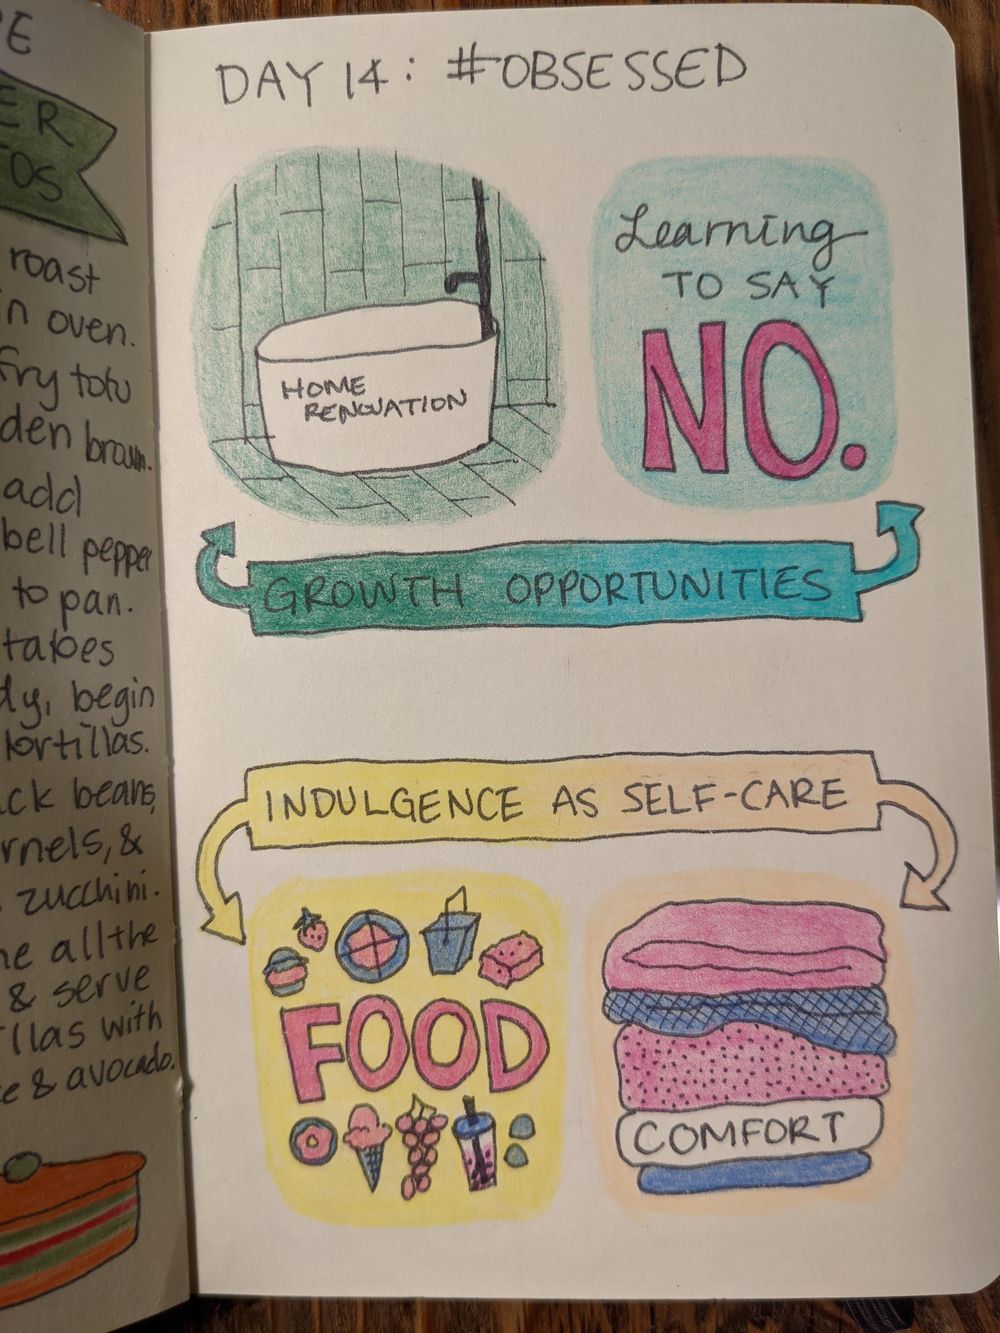 ER
TOS
roast
oven.
fry tofu
brown.
add
bell pepper
to pan.
begin
tortillas.
beans,
&
zucchini.
all the
& serve
with
& avocado.
DAY 14: #OBSESSED
HOME
RENOVATION
Learning
TO SAY
NO.
GROWTH OPPORTUNITIES
INDULGENCE AS SELF-CARE
FOOD
COMFORT